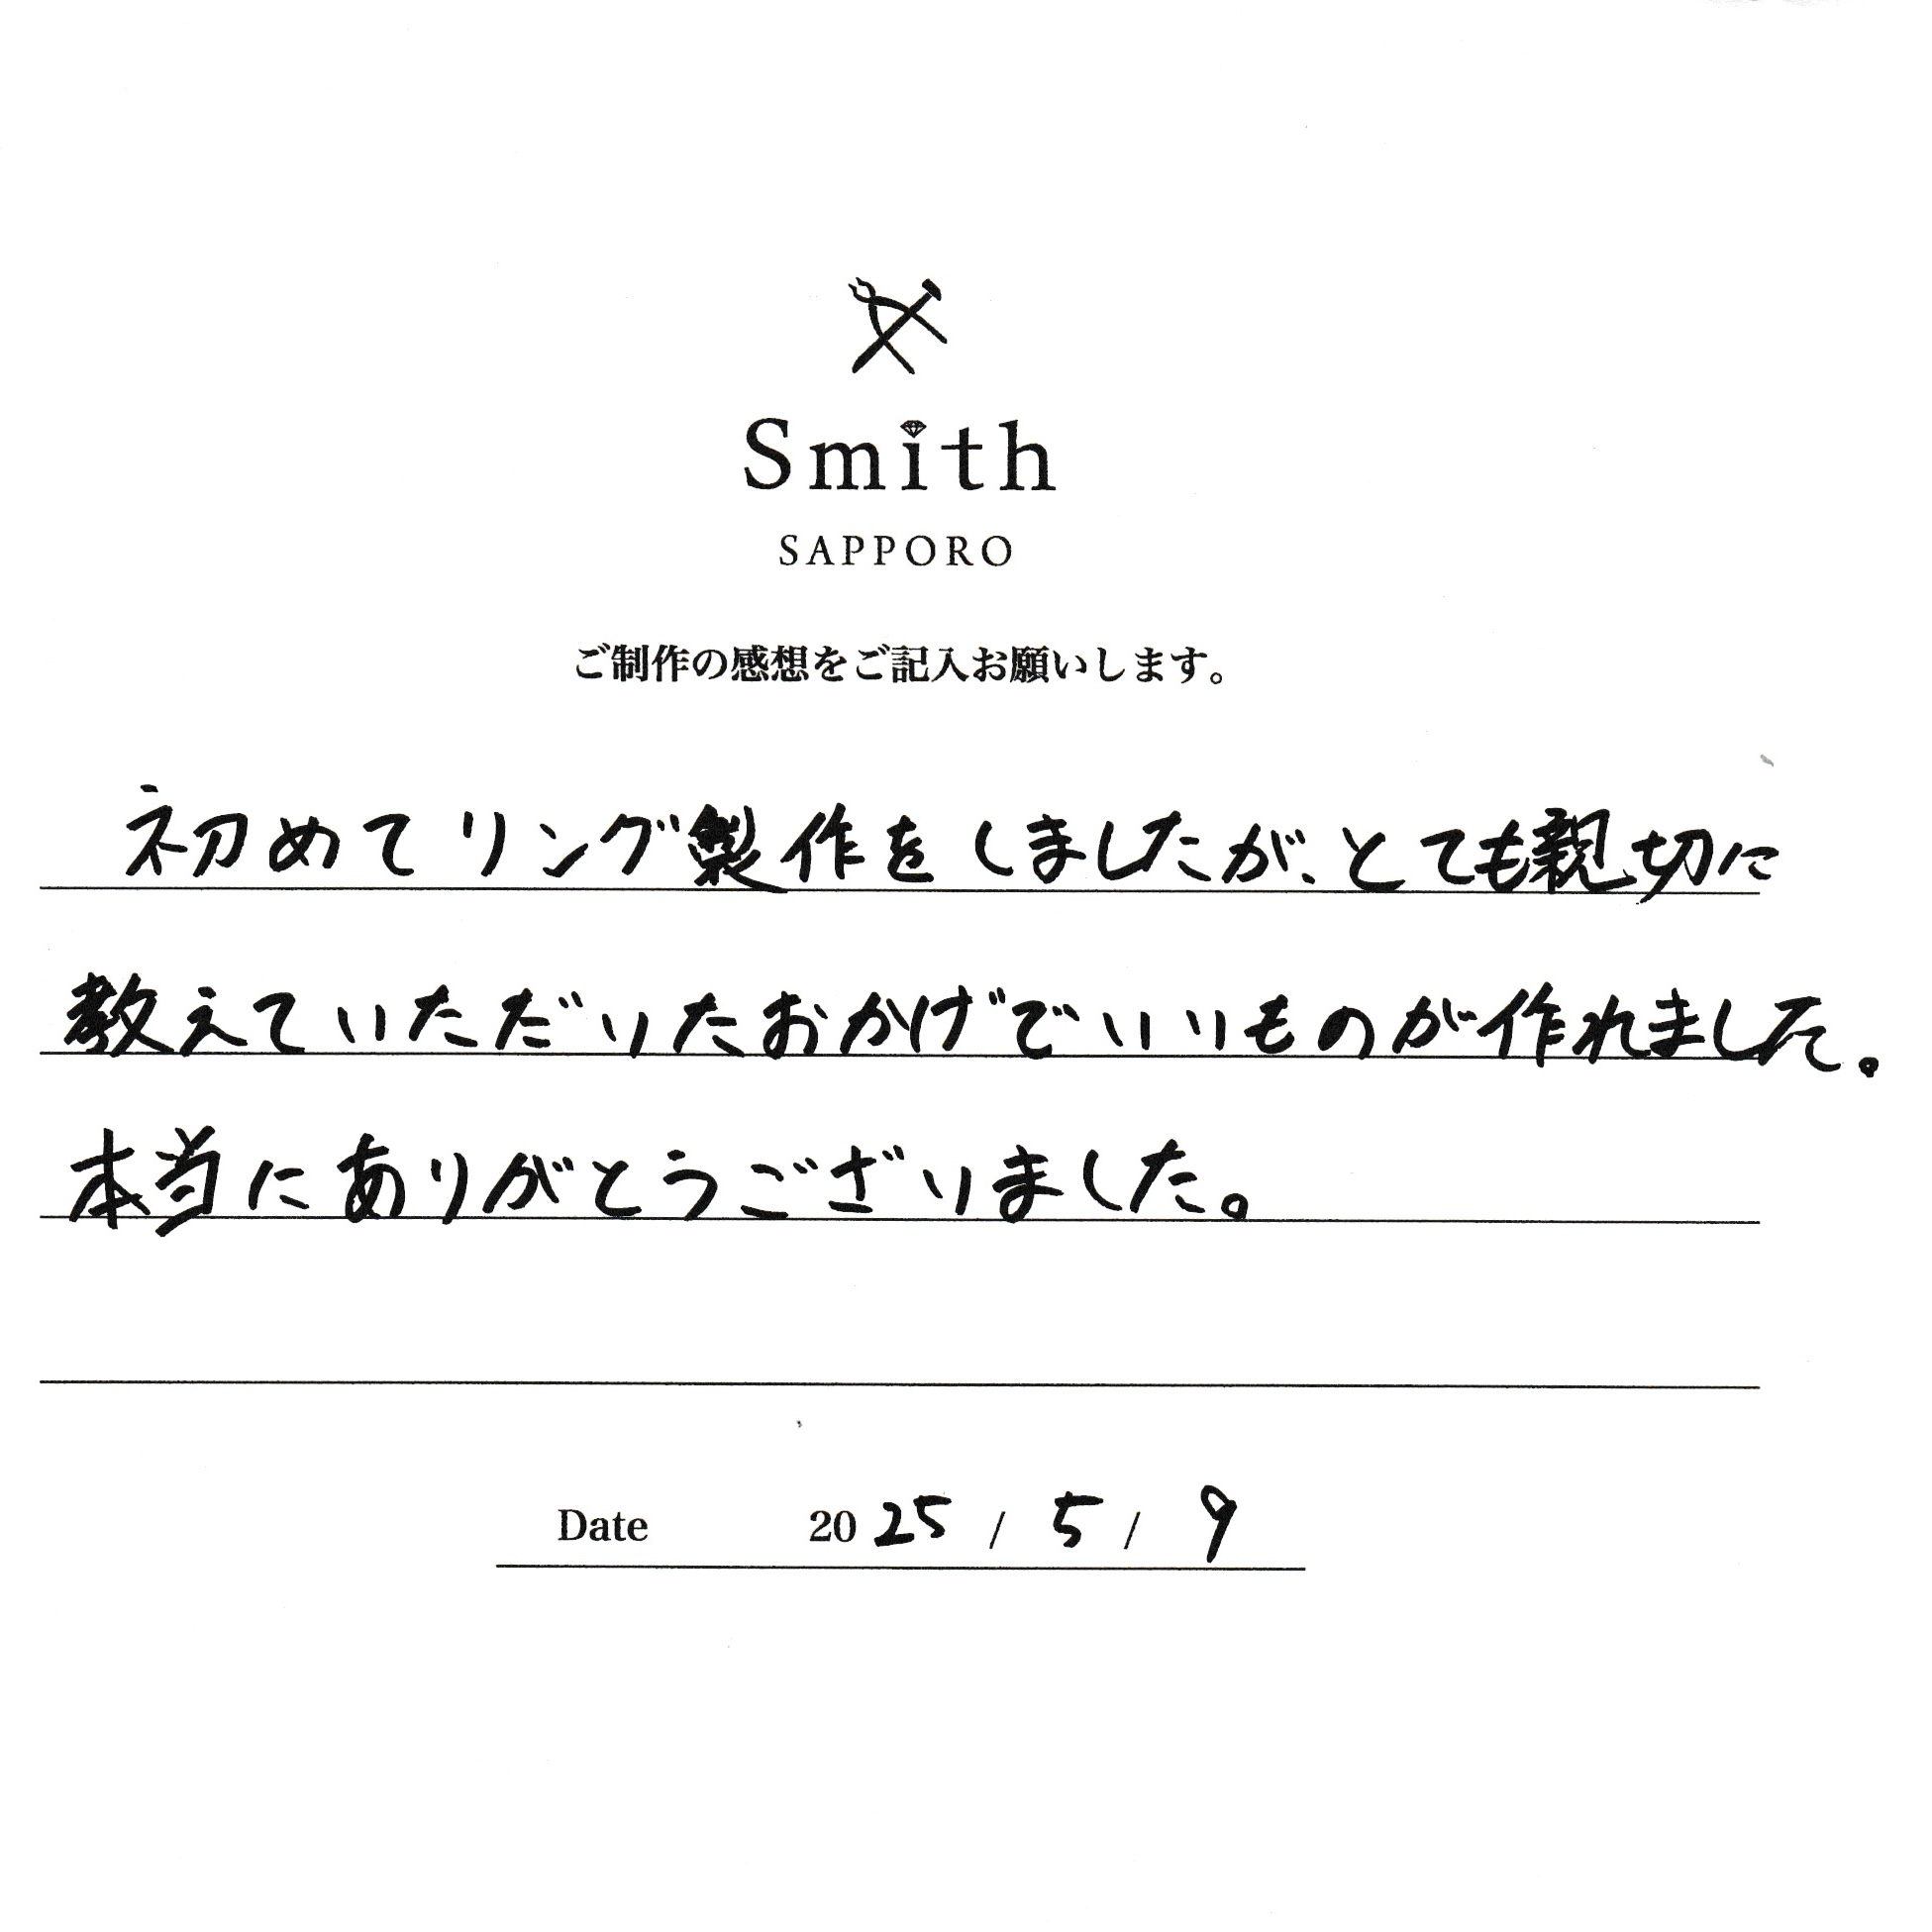 Smith
SAPPORO
ご制作の感想をご記入お願いします。
初めてリング製作をしましたが、とても親切に
教えていただいたおかげでいいものが作れました。
本当にありがとうございました。
Date 2025 / 5 / 9